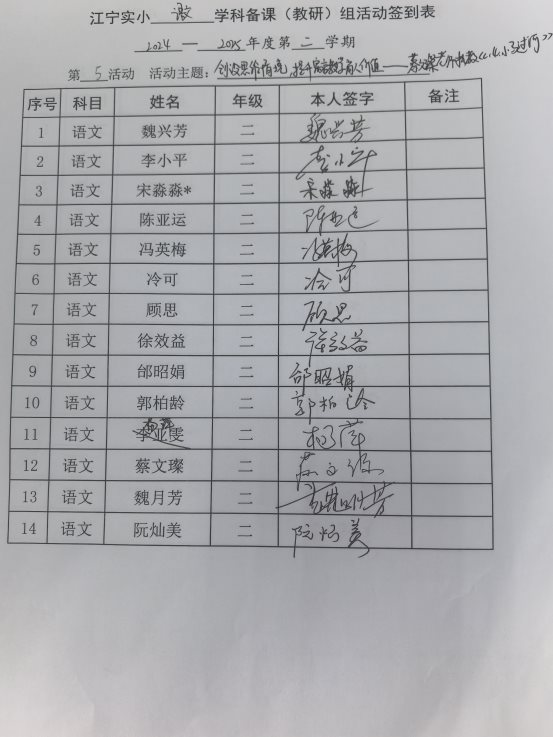 江宁实小 语文 学科备课（教研）组活动签到表
2024 — 2025 年度第 二 学期
第 5 活动 活动主题：创设思辨情境，提升语文教学育人价值——蔡文璨老师执教《小马过河》
序号 科目 姓名 年级 本人签字 备注
1 语文 魏兴芳 二 魏兴芳
2 语文 李小平 二 李小平
3 语文 宋淼淼* 二 宋淼淼
4 语文 陈亚运 二 陈亚运
5 语文 冯英梅 二 冯英梅
6 语文 冷可 二 冷可
7 语文 顾思 二 顾思
8 语文 徐效益 二 徐效益
9 语文 邰昭娟 二 邰昭娟
10 语文 郭柏龄 二 郭柏龄
11 语文 李亚雯 二
12 语文 蔡文璨 二 蔡文璨
13 语文 魏月芳 二 魏月芳
14 语文 阮灿美 二 阮灿美